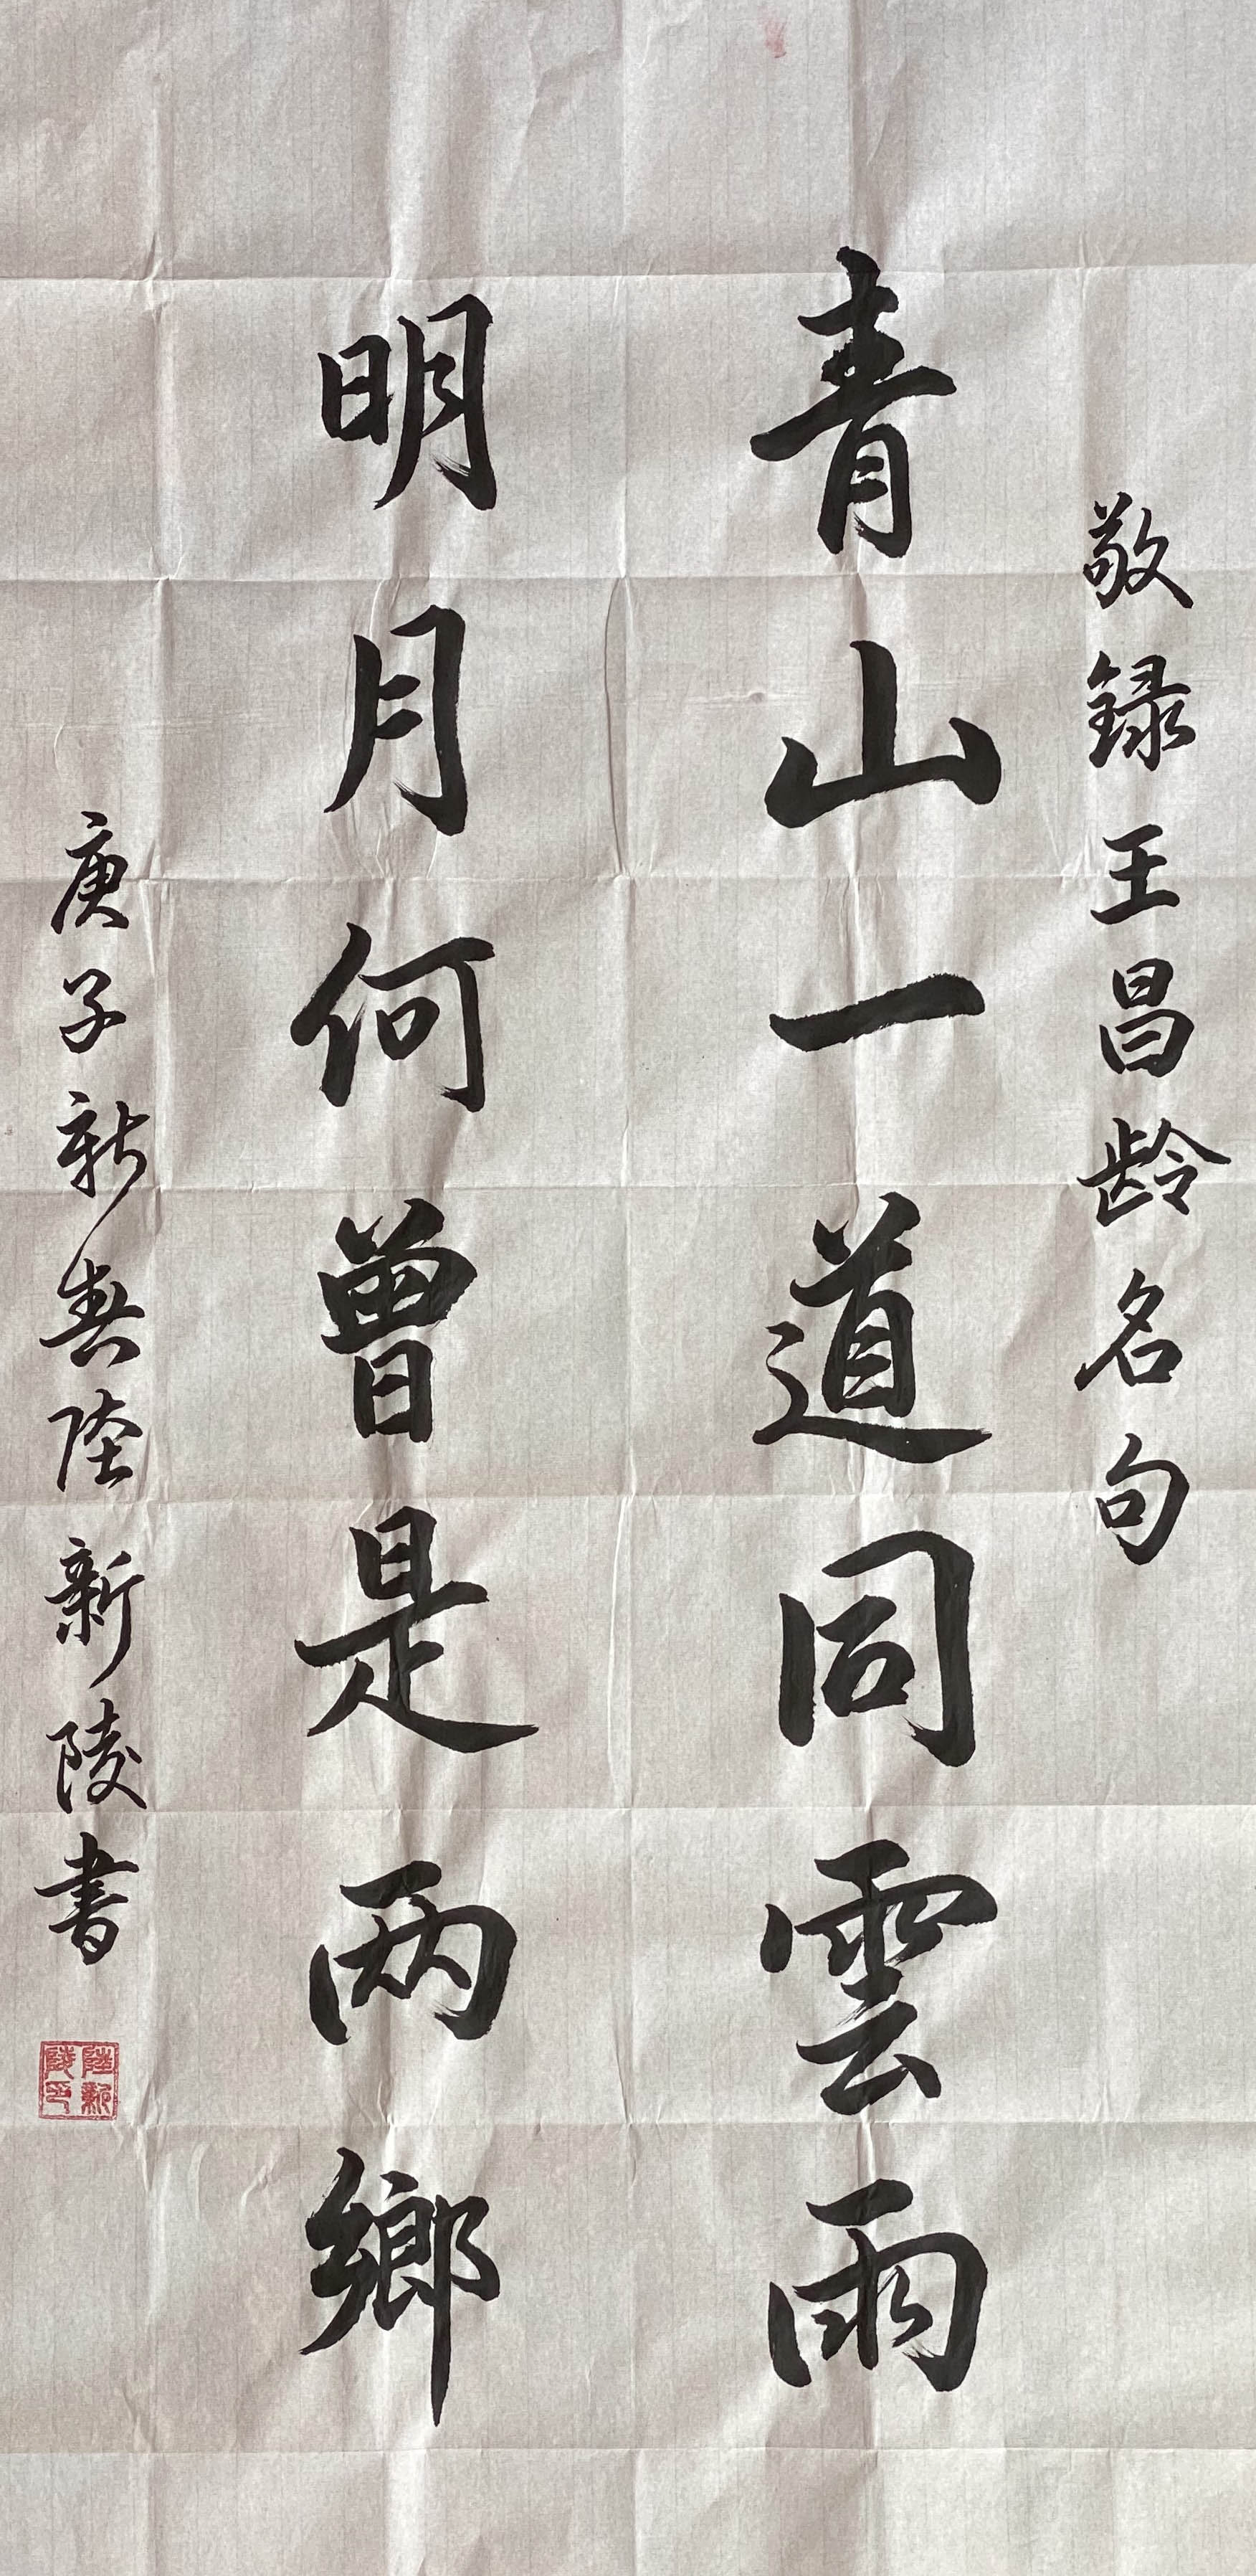 敬録王昌龄名句
青山一道同雲雨
明月何曾是两鄉
庚子新春陸新陵書
陸新陵印